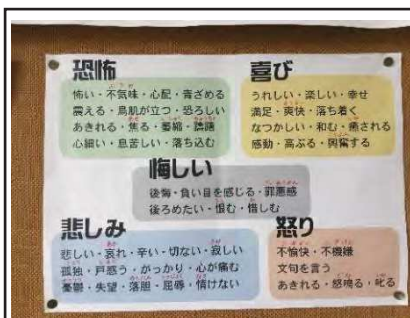 恐怖
怖い・不気味・心配・青ざめる
震える・鳥肌が立つ・恐ろしい
あきれる・焦る・萎縮・躊躇
心細い・息苦しい・落ち込む
喜び
うれしい・楽しい・幸せ
満足・爽快・落ち着く
なつかしい・和む・癒される
感動・高ぶる・興奮する
悔しい
後悔・負い目を感じる・罪悪感
後ろめたい・恨む・惜しむ
悲しみ
悲しい・哀れ・辛い・切ない・寂しい
孤独・戸惑う・がっかり・心が痛む
憂鬱・失望・落胆・屈辱・情けない
怒り
不愉快・不機嫌
文句を言う
あきれる・怒鳴る・叱る